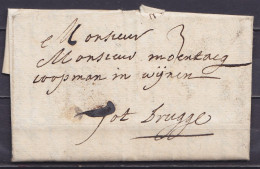 Monsieur 3
Monsieur moentacq
coopman in wijnen
tot brugge